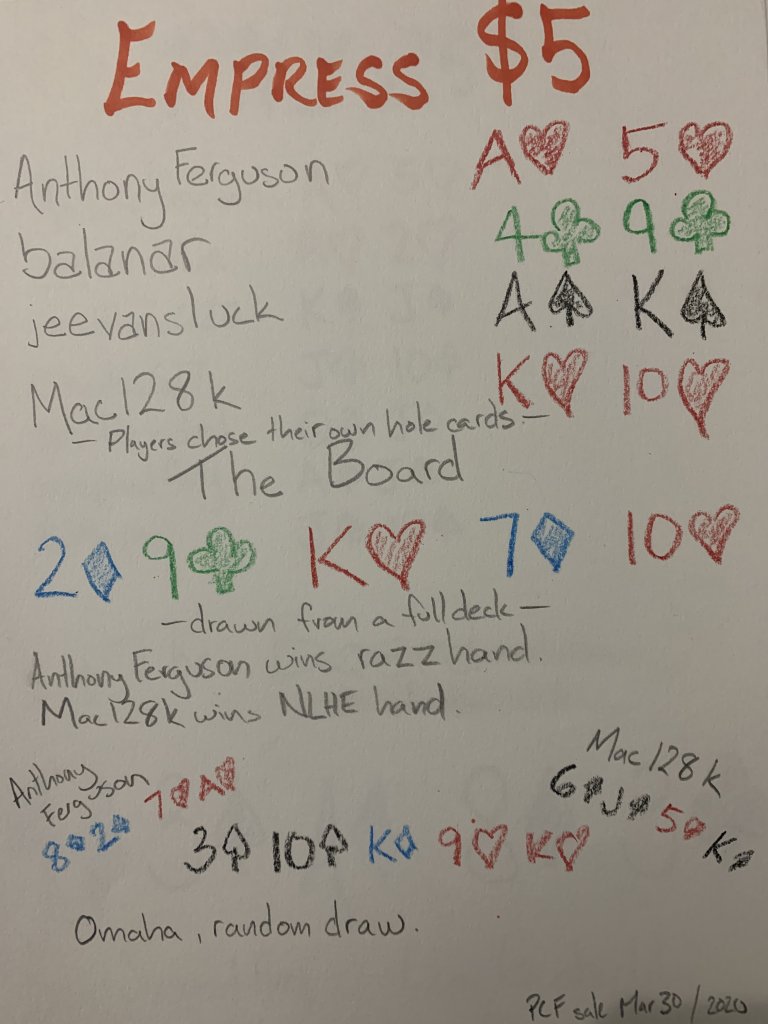 EMPRESS $5
Anthony Ferguson A♥ 5♥
balanar 4♣ 9♣
jeevansluck A♠ K♠
Mac128k K♥ 10♥
— Players chose their own hole cards. —
The Board
2♦ 9♣ K♥ 7♦ 10♥
— drawn from a full deck —
Anthony Ferguson wins razz hand.
Mac128k wins NLHE hand.
Anthony
Ferguson
8♦ 2♦ 7♥ A♥
Mac128k
6♠ J♠ 5♥ K♠
3♠ 10♠ K♦ 9♥ K♥
Omaha, random draw.
PCF sale Mar 30/2020